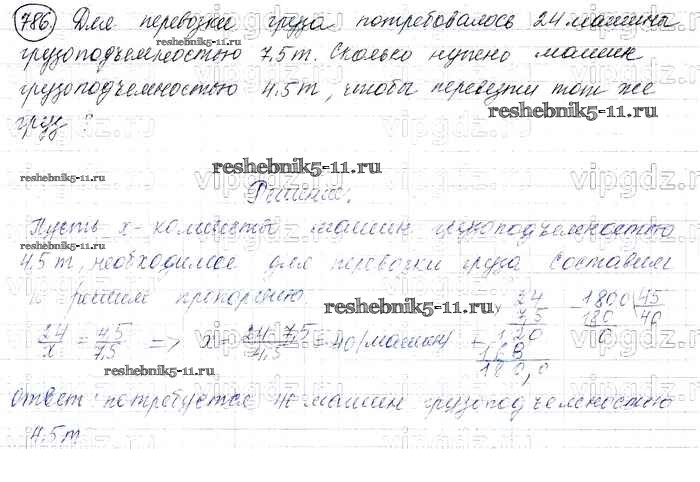 786. Для перевозки груза потребовалось 24 машины
грузоподъемностью 7,5 т. Сколько нужно машин
грузоподъемностью 4,5 т, чтобы перевезти тот же
груз?
Решение.
Пусть x - количество машин грузоподъемностью
4,5 т, необходимое для перевозки груза. Составим
и решим пропорцию.
24/x = 4,5/7,5 => x = 24·7,5/4,5 = 40 (машин)
24
7,5
120
168
180,0
1800 45
180 40
0
Ответ: потребуется 40 машин грузоподъемностью
4,5 т
reshebnik5-11.ru
reshebnik5-11.ru
reshebnik5-11.ru
reshebnik5-11.ru
reshebnik5-11.ru
reshebnik5-11.ru
reshebnik5-11.ru
vipgdz.ru
vipgdz.ru
vipgdz.ru